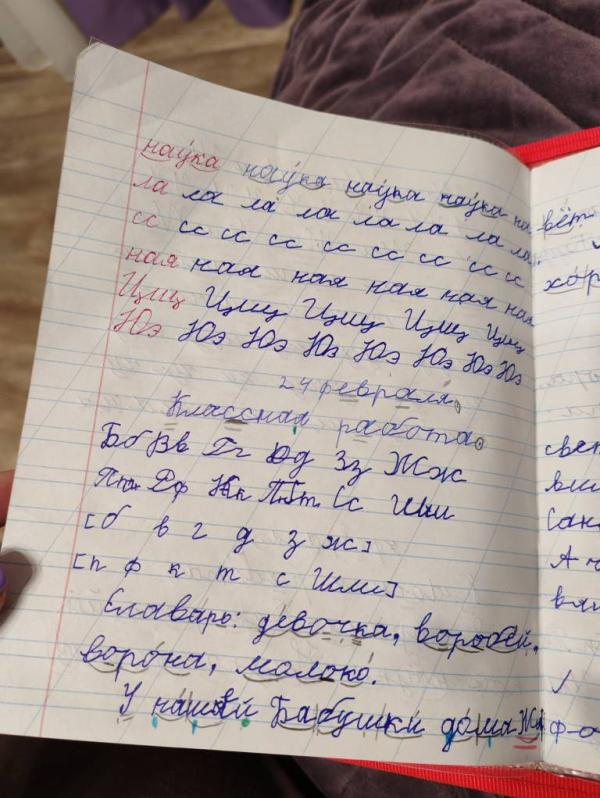 наука наука наука наука на
ла ла ла ла ла ла ла ла
сс сс сс сс сс сс сс сс сс
ная ная ная ная ная ная
Цищ Цищ Цищ Цищ Цищ
Юэ Юэ Юэ Юэ Юэ Юэ Юэ Юэ
24 февраля.
Классная работа.
Бб Вв Гг Дд Зз Жж
Пп Фф Кк Тт Сс Шш
[б в г д з ж]
[п ф к т с Ш]
Славарь: девочка, воробей,
ворона, молоко.
У нашей Бабушки дома
вёт
хор
свет
Сан
А
вя
ф-